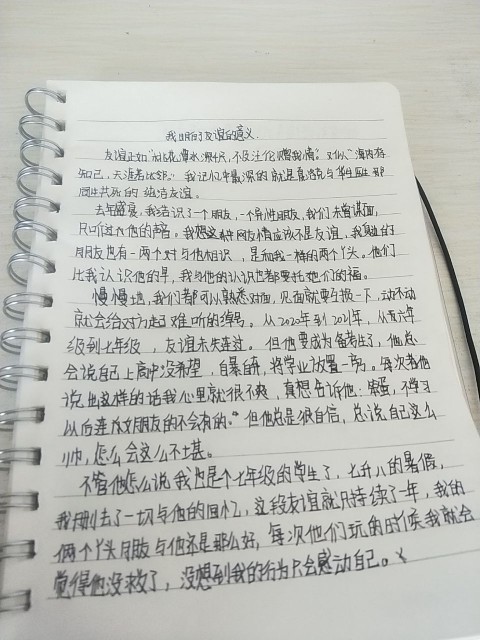 我明白了友谊的意义.
友谊正如"桃花潭水深千尺,不及汪伦赠我情"又似"海内存
知己,天涯若比邻。"我记忆中最深的就是 与 那
同生共死的 友谊。
去年盛夏,我结识了一个朋友,一个异性朋友,我们未曾谋面,
只听过他的声音。我想这种网友情应该不是友谊,我身边的
朋友也有一两个对与他相识,是和我一样的两个丫头。他们
比我认识他的早,我与他的认识也都要托她们的福。
慢慢地,我们者都可以熟悉对面,见面就要互损一下,动不动
就会给对方起难听的绰号。从2020年到2021年,从六年
级到七年级,友谊未失连过。但他要成为备考生了,他总
会说自己上高中没希望,自暴自弃,将学业放置一旁。每次看他
说出这样的话我心里就很不爽,真想告诉他:"笨蛋,不学习
以后连女朋友的不会有的。"但他总是很自信,总说自己这么
小帅,怎么会这么不堪。
不管他怎么说我也是个七年级的学生了,七升八的暑假,
我删去了一切与他的回忆,这段友谊就只持续了一年,我的
俩个丫头朋友与他还是那么好,每次他们玩的时候我就会
觉得他没救了,没想到我的行为只会感动自己。